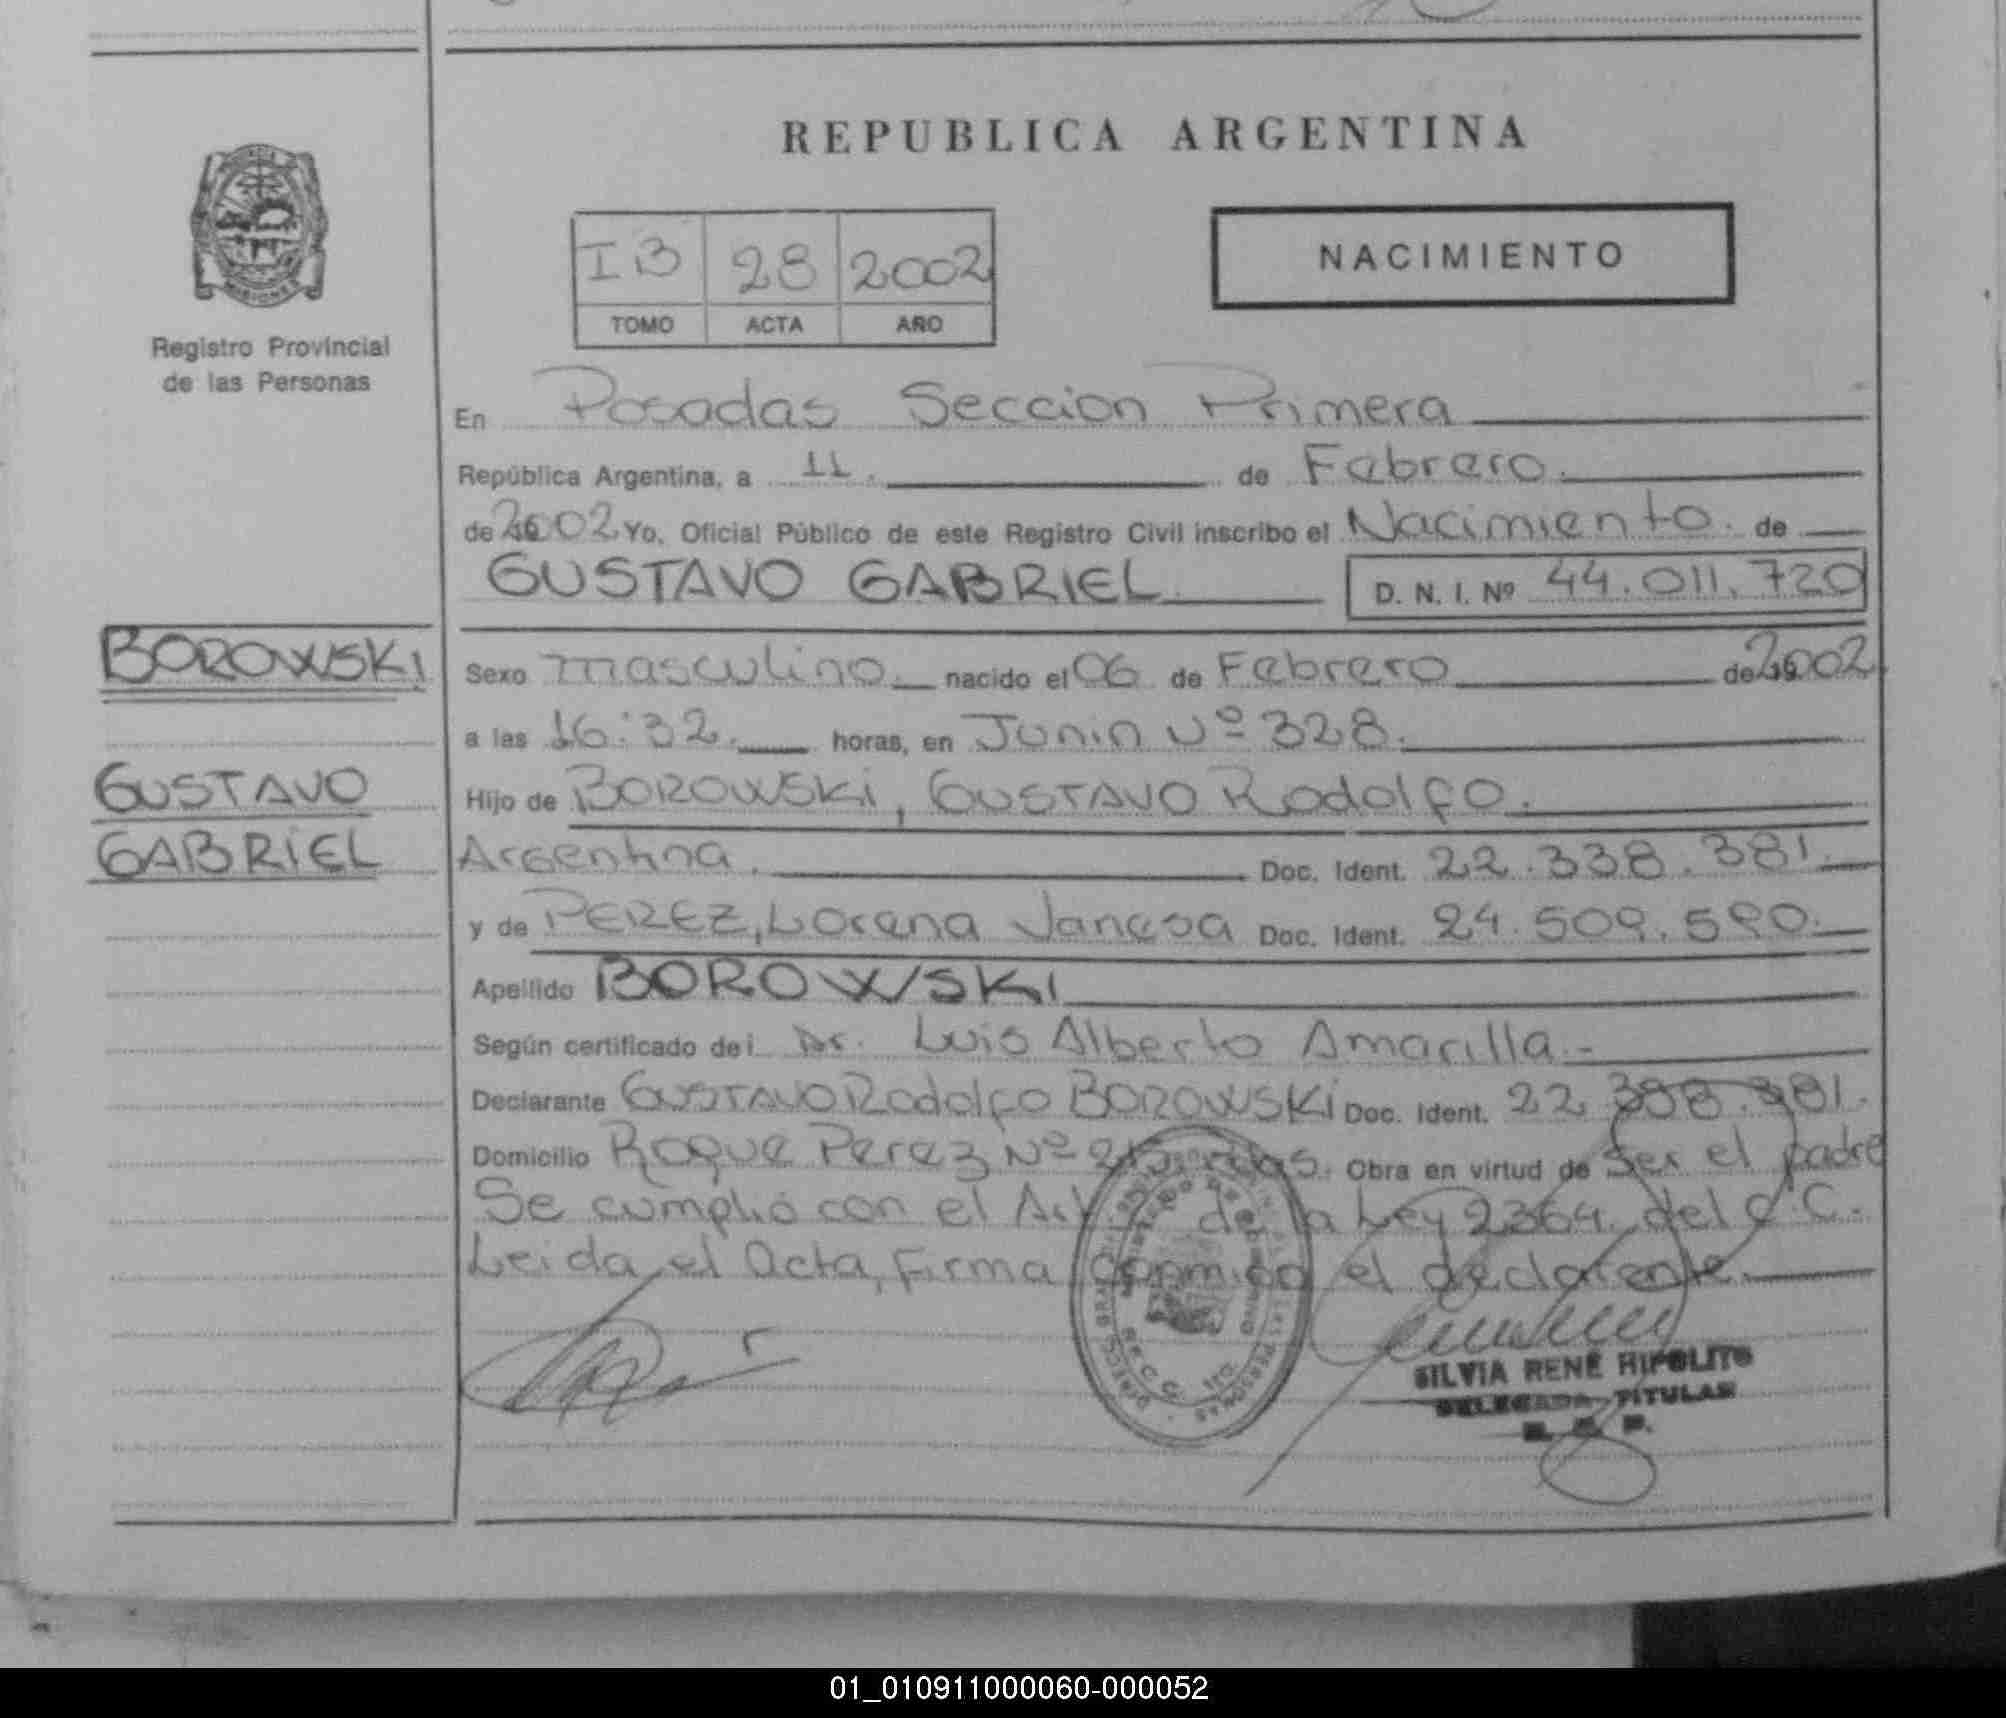 REPUBLICA ARGENTINA
MISIONES
Registro Provincial
de las Personas
IB 28 2002
TOMO ACTA AÑO
NACIMIENTO
En Posadas Seccion Primera
República Argentina, a 11. de Febrero.
de 2002 Yo, Oficial Público de este Registro Civil inscribo el Nacimiento. de
GUSTAVO GABRIEL D. N. I. Nº 44.011.720
BOROWSKI
GUSTAVO
GABRIEL
Sexo masculino. nacido el 06 de Febrero de 2002
a las 16:32. horas, en Junin Nº 328.
Hijo de BOROWSKI, GUSTAVO Rodolfo.
Argentina. Doc. Ident. 22.338.381.
y de PEREZ, Lorena Vanesa Doc. Ident. 24.509.590.
Apellido BOROWSKI
Según certificado del Dr. Luis Alberto Amarilla.-
Declarante GUSTAVO Rodolfo BOROWSKI Doc. Ident. 22.338.381.
Domicilio Roque Perez Nº Obra en virtud de Ser el padre
Se cumplió con el Art de la Ley 2364. del C.C.
Leida el Acta, Firma conmigo el declarente.
SILVIA RENÉ HIPOLITO
DELEGADA TITULAR
01_010911000060-000052